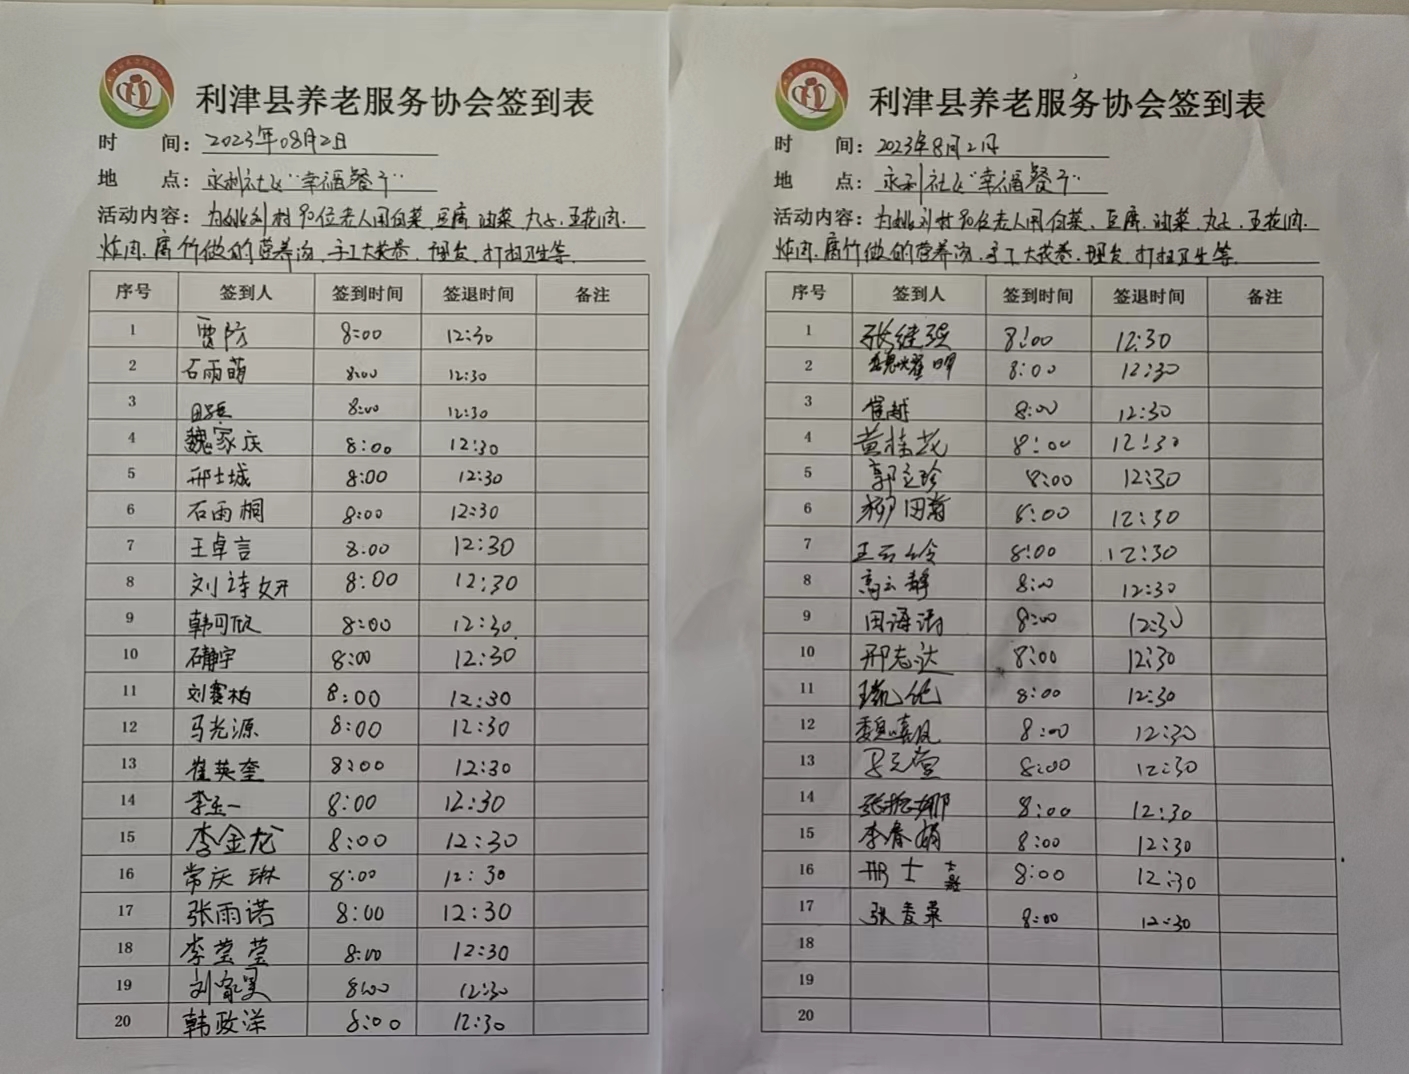 利津县养老服务协会签到表
时 间：2023年08月2日
地 点：永利社区"幸福餐厅"
活动内容：为姚刘村80位老人用白菜、豆腐、油菜、丸子、五花肉、
炸肉、腐竹做的营养汤、手工大花卷、理发、打扫卫生等
序号 签到人 签到时间 签退时间 备注
1 贾防 8:00 12:30
2 石雨萌 8:00 12:30
3 8:00 12:30
4 魏家庆 8:00 12:30
5 邢士城 8:00 12:30
6 石雨桐 8:00 12:30
7 王卓言 8:00 12:30
8 刘诗妍 8:00 12:30
9 韩可欣 8:00 12:30
10 石静宇 8:00 12:30
11 刘赛柏 8:00 12:30
12 马光源 8:00 12:30
13 崔英奎 8:00 12:30
14 李玉一 8:00 12:30
15 李金龙 8:00 12:30
16 常庆琳 8:00 12:30
17 张雨诺 8:00 12:30
18 李莹莹 8:00 12:30
19 刘家昊 8:00 12:30
20 韩政洋 8:00 12:30
利津县养老服务协会签到表
时 间：2023年8月2日
地 点：永利社区"幸福餐厅"
活动内容：为姚刘村80位老人用白菜、豆腐、油菜、丸子、五花肉、
炸肉、腐竹做的营养汤、手工大花卷、理发、打扫卫生等
序号 签到人 签到时间 签退时间 备注
1 张继强 8:00 12:30
2 魏耀明 8:00 12:30
3 崔越 8:00 12:30
4 黄桂花 8:00 12:30
5 郭立珍 8:00 12:30
6 柳田菊 8:00 12:30
7 王云玲 8:00 12:30
8 高云静 8:00 12:30
9 田海涛 8:00 12:30
10 邢志达 8:00 12:30
11 8:00 12:30
12 8:00 12:30
13 8:00 12:30
14 张振娜 8:00 12:30
15 李春娟 8:00 12:30
16 邢士 8:00 12:30
17 张麦菜 8:00 12:30
18
19
20